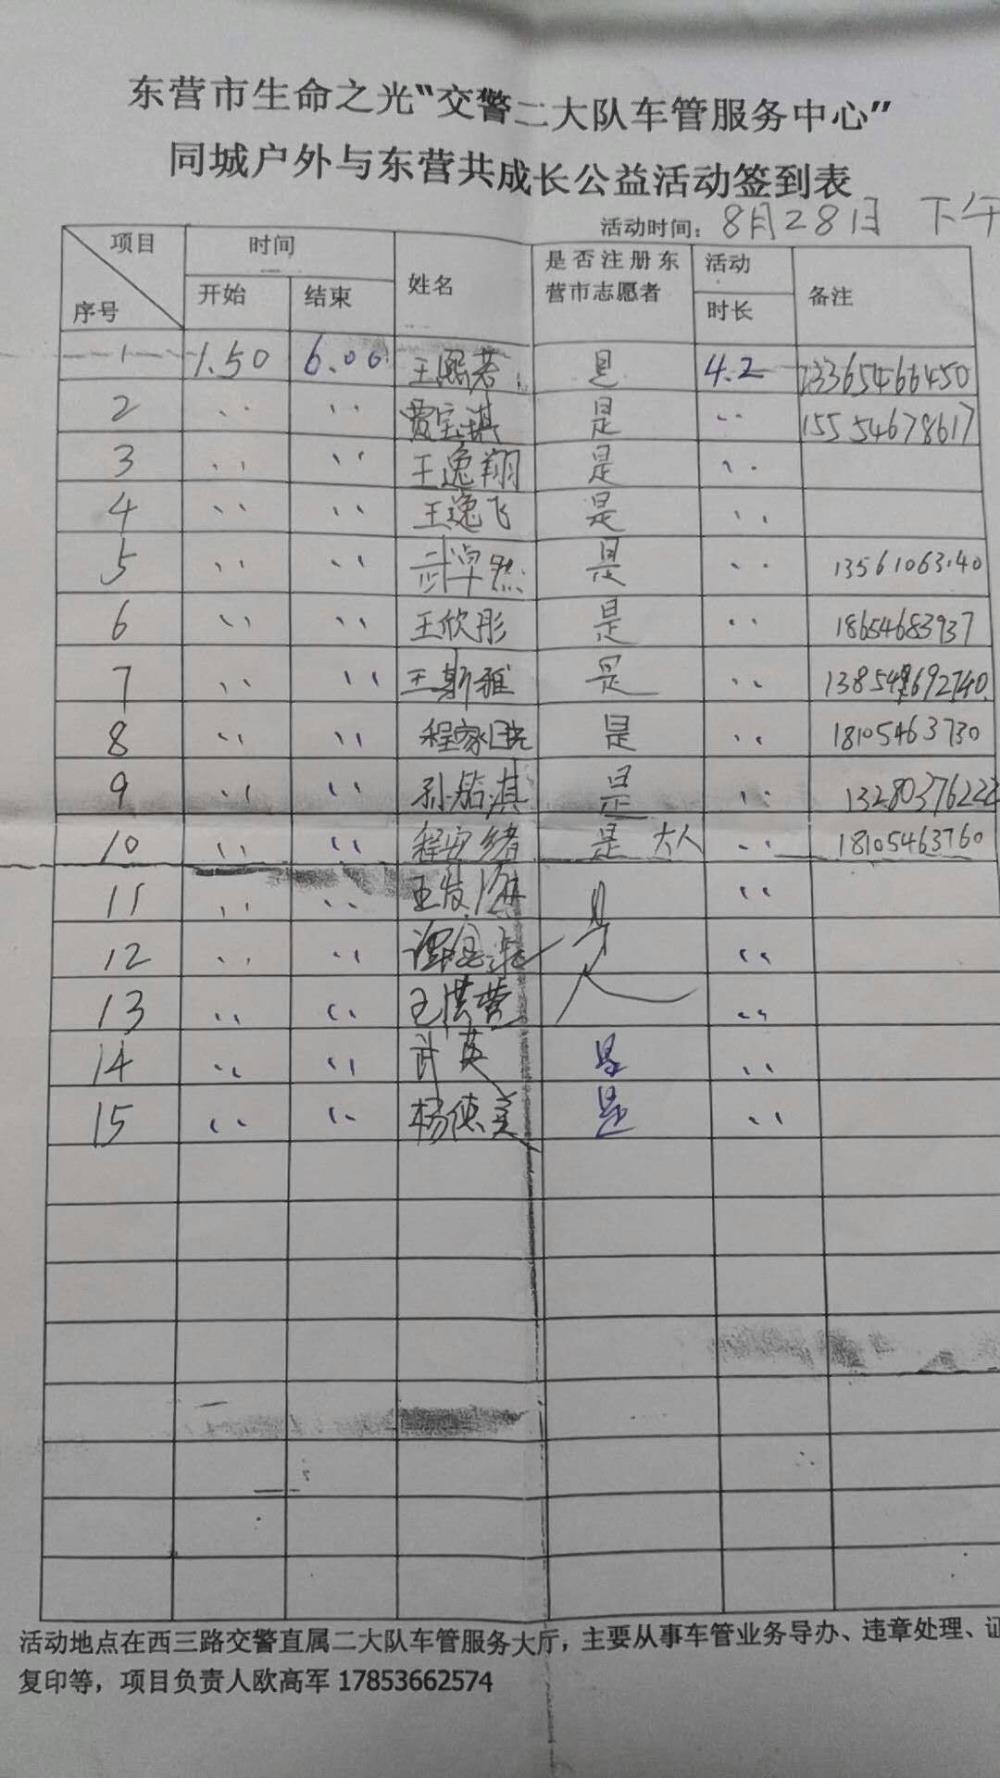 东营市生命之光“交警二大队车管服务中心”
同城户外与东营共成长公益活动签到表
活动时间：8月28日 下午
项目 时间 姓名 是否注册东 活动 备注
序号 开始 结束 营市志愿者 时长
1 1.50 6.00 王熙若 是 4.2 13365466450
2 〃 〃 贾宝琪 是 〃 15554678617
3 〃 〃 王逸翔 是 〃
4 〃 〃 王逸飞 是 〃
5 〃 〃 武卓然 是 〃 13561063140
6 〃 〃 王欣彤 是 〃 18654683937
7 〃 〃 王斯雅 是 〃
8 〃 〃 程家 是 〃 18105463730
9 〃 〃 孙茹淇 是 〃
10 〃 〃 程安绪 是 大人 〃 18105463760
11 〃 〃 〃
12 〃 〃 是 〃
13 〃 〃 王洪营 〃
14 〃 〃 武英 是 〃
15 〃 〃 杨德美 是 〃
活动地点在西三路交警直属二大队车管服务大厅，主要从事车管业务导办、违章处理、证
复印等，项目负责人欧高军 17853662574